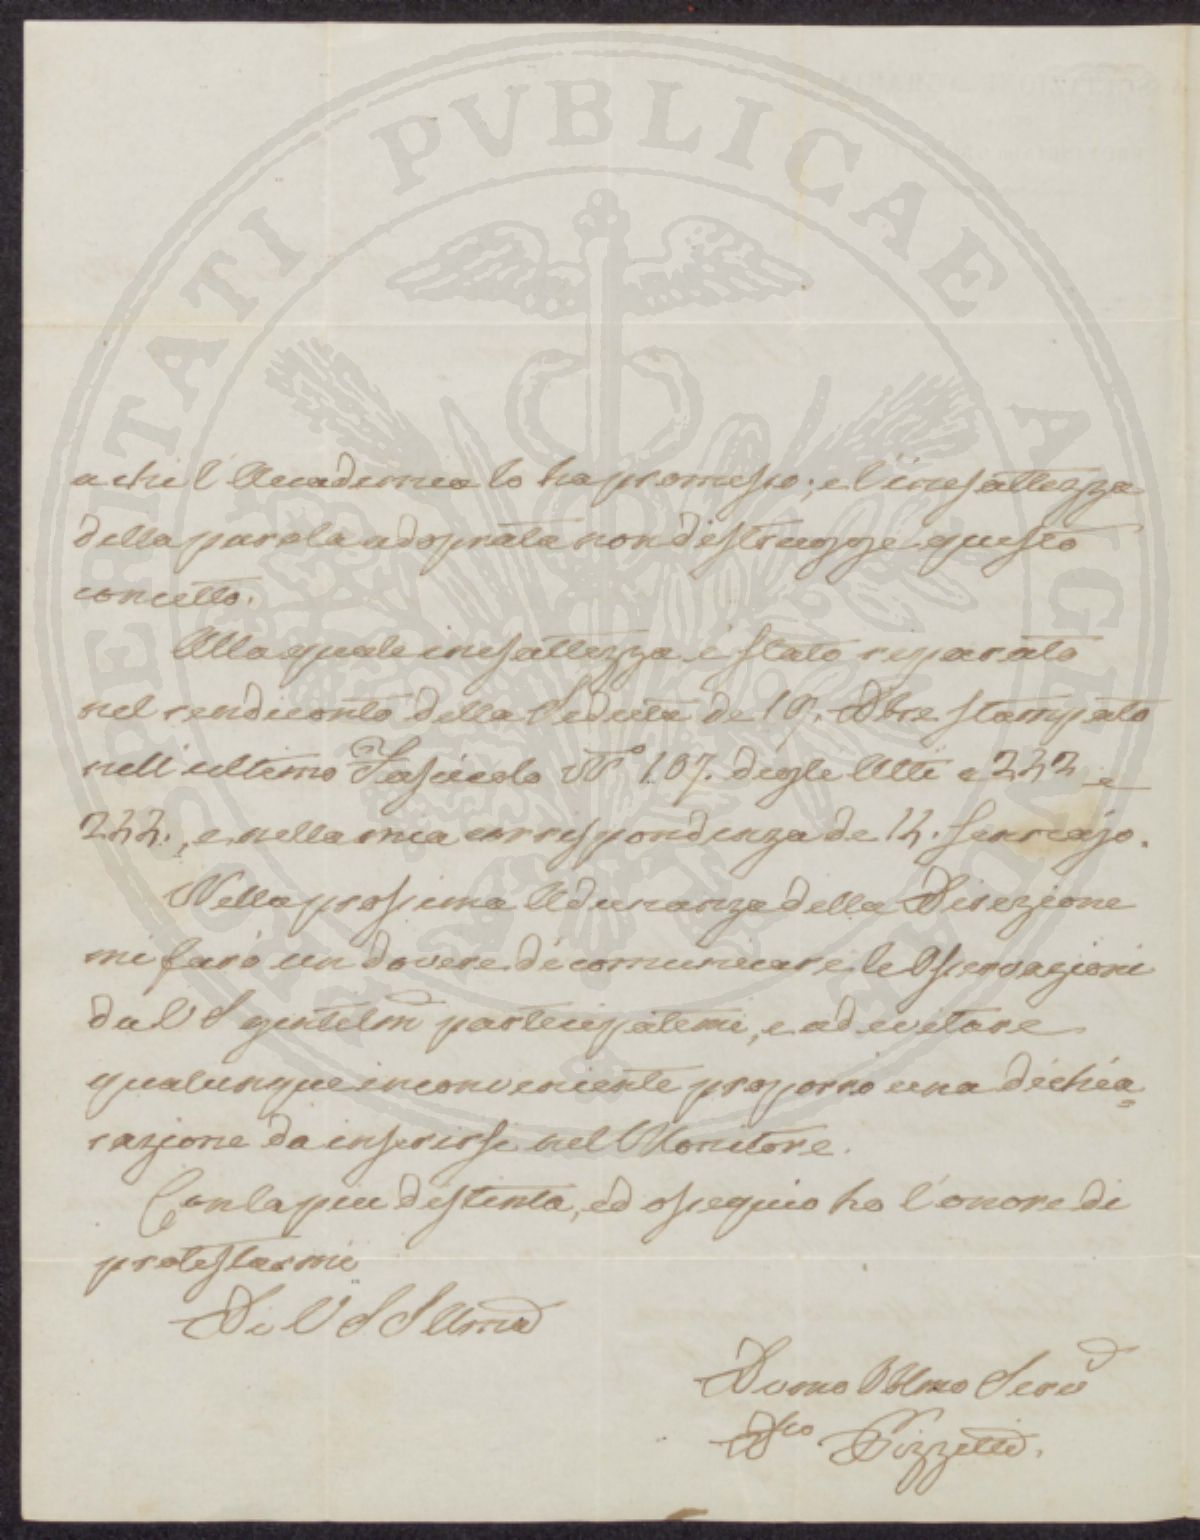 PROSPERITATI PVBLICAE AVGENDAE
a chi l'Accademia lo ha promesso; e l'inesattezza
della parola adoprata non distrugge questo
concetto.
Alla quale inesattezza è stato riparato
nel rendiconto della Seduta de 19. Xbre stampato
nell'ultimo Fascicolo N.º 107. degli Atti a 242 e
244., e nella mia corrispondenza de 14. Gennajo.
Nella prossima Adunanza della Direzione
mi farò un dovere di comunicare le Osservazioni
da V S gentilm partecipatemi, e ad evitare
qualunque inconveniente proporrò una dichia=
razione da inserirsi nel Monitore.
Con la piu distinta, ed ossequio ho l'onore di
protestarmi
Di V S Illma
Dvmo Obbmo Serv
Pizzetti.